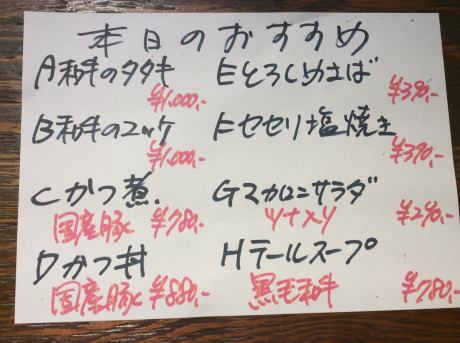 本日のおすすめ
A和牛のタタキ
¥1,000,-
B和牛のユッケ
¥1,000,-
Cかつ煮.
国産豚 ¥780,-
Dかつ丼
国産豚 ¥880,-
Eとろしめさば
¥390,-
Fセセリ塩焼き
¥390,-
Gマカロニサラダ
¥290,-
Hテールスープ
黒毛和牛 ¥780,-